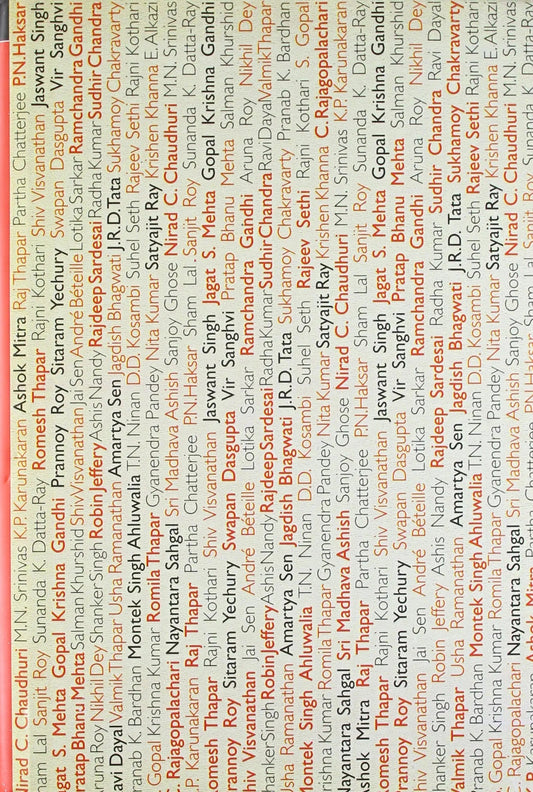 Nirad C. Chaudhuri M.N. Srinivas K.P. Karunakaran Ashok Mitra Raj Thapar Partha Chatterjee P.N.Haksar
Sham Lal Sanjit Roy Sunanda K. Datta-Ray Romesh Thapar Rajni Kothari Shiv Visvanathan Jaswant Singh
Jagat S. Mehta Gopal Krishna Gandhi Prannoy Roy Sitaram Yechury Swapan Dasgupta Vir Sanghvi
Pratap Bhanu Mehta Salman Khurshid Shiv Visvanathan Jai Sen André Béteille Lotika Sarkar Ramchandra Gandhi
Aruna Roy Nikhil Dey Shanker Singh Robin Jeffery Ashis Nandy Rajdeep Sardesai Radha Kumar Sudhir Chandra
Ravi Dayal Valmik Thapar Usha Ramanathan Amartya Sen Jagdish Bhagwati J.R.D. Tata Sukhamoy Chakravarty
Pranab K. Bardhan Montek Singh Ahluwalia T.N. Ninan D.D. Kosambi Suhel Seth Rajeev Sethi Rajni Kothari
S. Gopal Krishna Kumar Romila Thapar Gyanendra Pandey Nita Kumar Satyajit Ray Krishen Khanna E. Alkazi
C. Rajagopalachari Nayantara Sahgal Sri Madhava Ashish Sanjoy Ghose Nirad C. Chaudhuri M.N. Srinivas
K.P. Karunakaran Raj Thapar Partha Chatterjee P.N.Haksar Sham Lal Sanjit Roy Sunanda K. Datta-Ray
Romesh Thapar Rajni Kothari Shiv Visvanathan Jaswant Singh Jagat S. Mehta Gopal Krishna Gandhi
Prannoy Roy Sitaram Yechury Swapan Dasgupta Vir Sanghvi Pratap Bhanu Mehta Salman Khurshid
Shiv Visvanathan Jai Sen André Béteille Lotika Sarkar Ramchandra Gandhi Aruna Roy Nikhil Dey
Shanker Singh Robin Jeffery Ashis Nandy Rajdeep Sardesai Radha Kumar Sudhir Chandra Ravi Dayal Valmik Thapar
Usha Ramanathan Amartya Sen Jagdish Bhagwati J.R.D. Tata Sukhamoy Chakravarty Pranab K. Bardhan
Montek Singh Ahluwalia T.N. Ninan D.D. Kosambi Suhel Seth Rajeev Sethi Rajni Kothari S. Gopal
Krishna Kumar Romila Thapar Gyanendra Pandey Nita Kumar Satyajit Ray Krishen Khanna C. Rajagopalachari
Nayantara Sahgal Sri Madhava Ashish Sanjoy Ghose Nirad C. Chaudhuri M.N. Srinivas K.P. Karunakaran
Ashok Mitra Raj Thapar Partha Chatterjee P.N.Haksar Sham Lal Sanjit Roy Sunanda K. Datta-Ray
Romesh Thapar Rajni Kothari Shiv Visvanathan Jaswant Singh Jagat S. Mehta Gopal Krishna Gandhi
Prannoy Roy Sitaram Yechury Swapan Dasgupta Vir Sanghvi Pratap Bhanu Mehta Salman Khurshid
Shiv Visvanathan Jai Sen André Béteille Lotika Sarkar Ramchandra Gandhi Aruna Roy Nikhil Dey
Shanker Singh Robin Jeffery Ashis Nandy Rajdeep Sardesai Radha Kumar Sudhir Chandra Ravi Dayal
Valmik Thapar Usha Ramanathan Amartya Sen Jagdish Bhagwati J.R.D. Tata Sukhamoy Chakravarty
Pranab K. Bardhan Montek Singh Ahluwalia T.N. Ninan D.D. Kosambi Suhel Seth Rajeev Sethi Rajni Kothari
S. Gopal Krishna Kumar Romila Thapar Gyanendra Pandey Nita Kumar Satyajit Ray Krishen Khanna E. Alkazi
C. Rajagopalachari Nayantara Sahgal Sri Madhava Ashish Sanjoy Ghose Nirad C. Chaudhuri M.N. Srinivas
K.P. Karunakaran Ashok Mitra Raj Thapar Partha Chatterjee P.N.Haksar Sham Lal Sanjit Roy Sunanda K. Datta-Ray